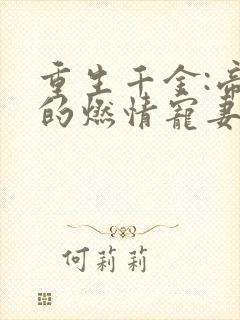 重生千金:帝
的燃情寵妻
何莉莉